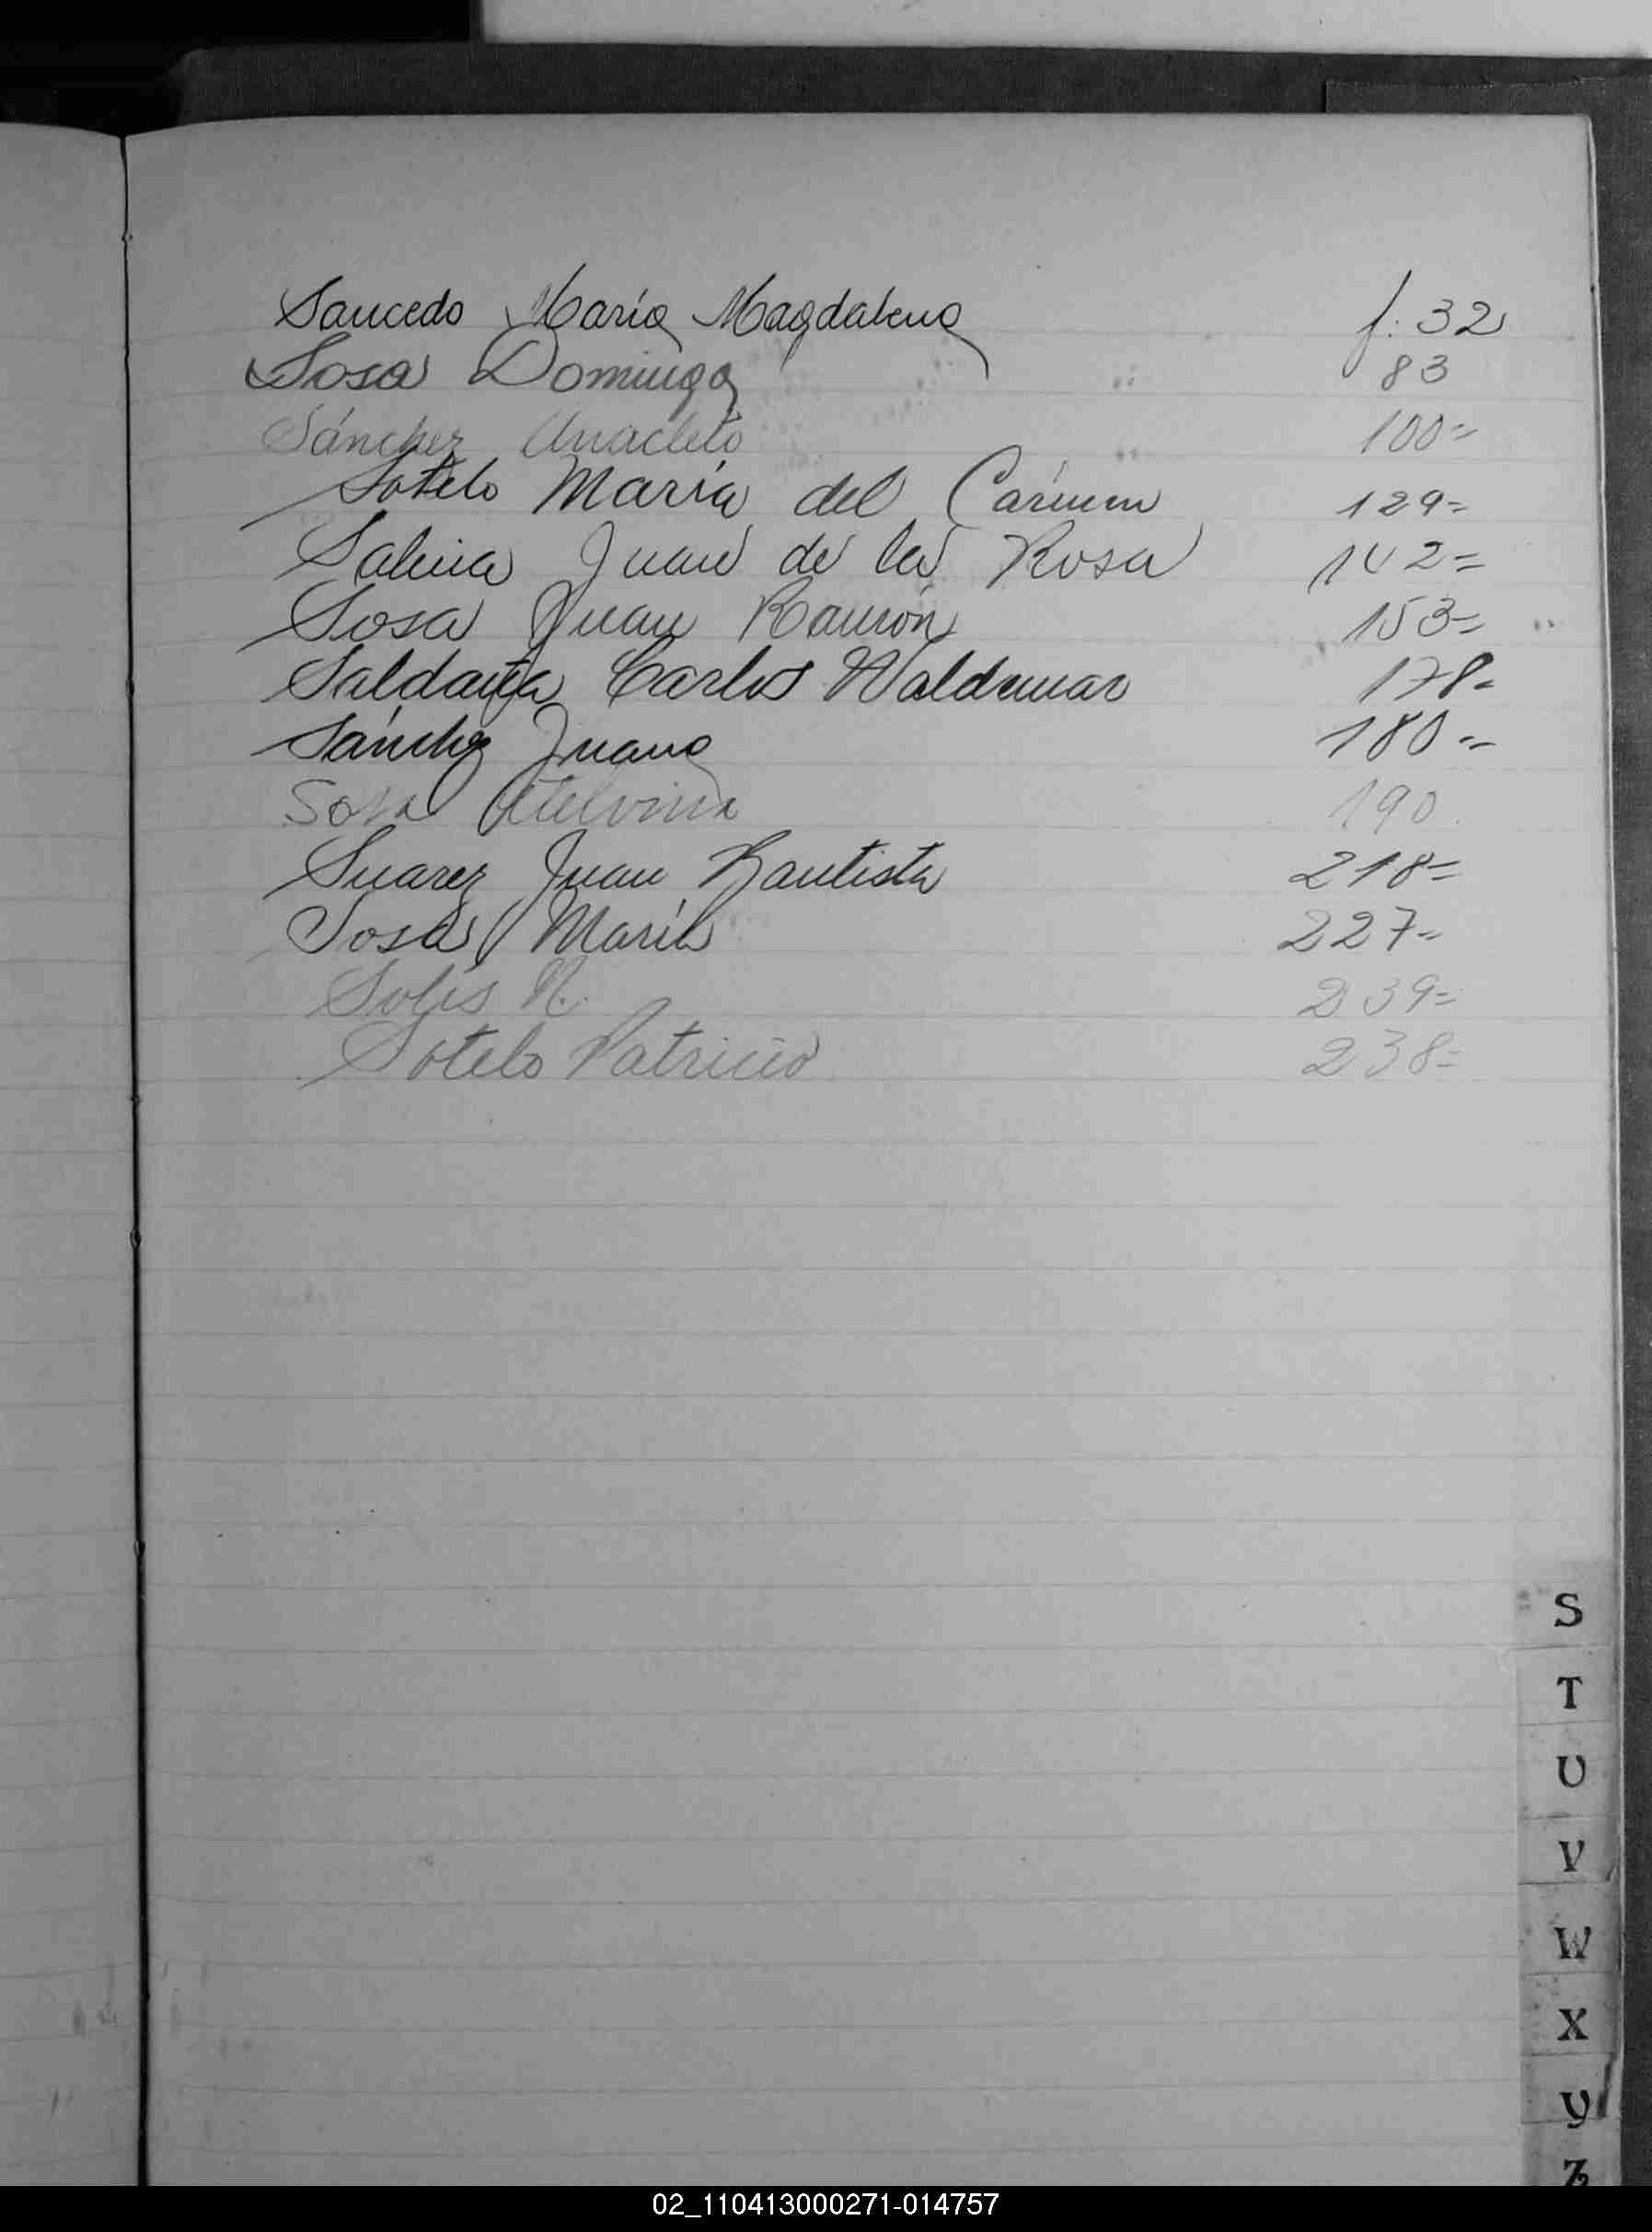 Saucedo María Magdalena f. 32
Sosa Dominga 83
Sánchez Anacleto 100=
Sotelo María del Carmen 129=
Salina Juan de la Rosa 142=
Sosa Juan Ramón 153=
Saldaña Carlos Waldemar 178=
Sánchez Juana 180=
Sosa Etelvina 190
Suarez Juan Bautista 218=
Sosa María 227=
Solis N. 239=
Sotelo Patricio 238=
S
T
U
V
W
X
Y
Z
02_110413000271-014757